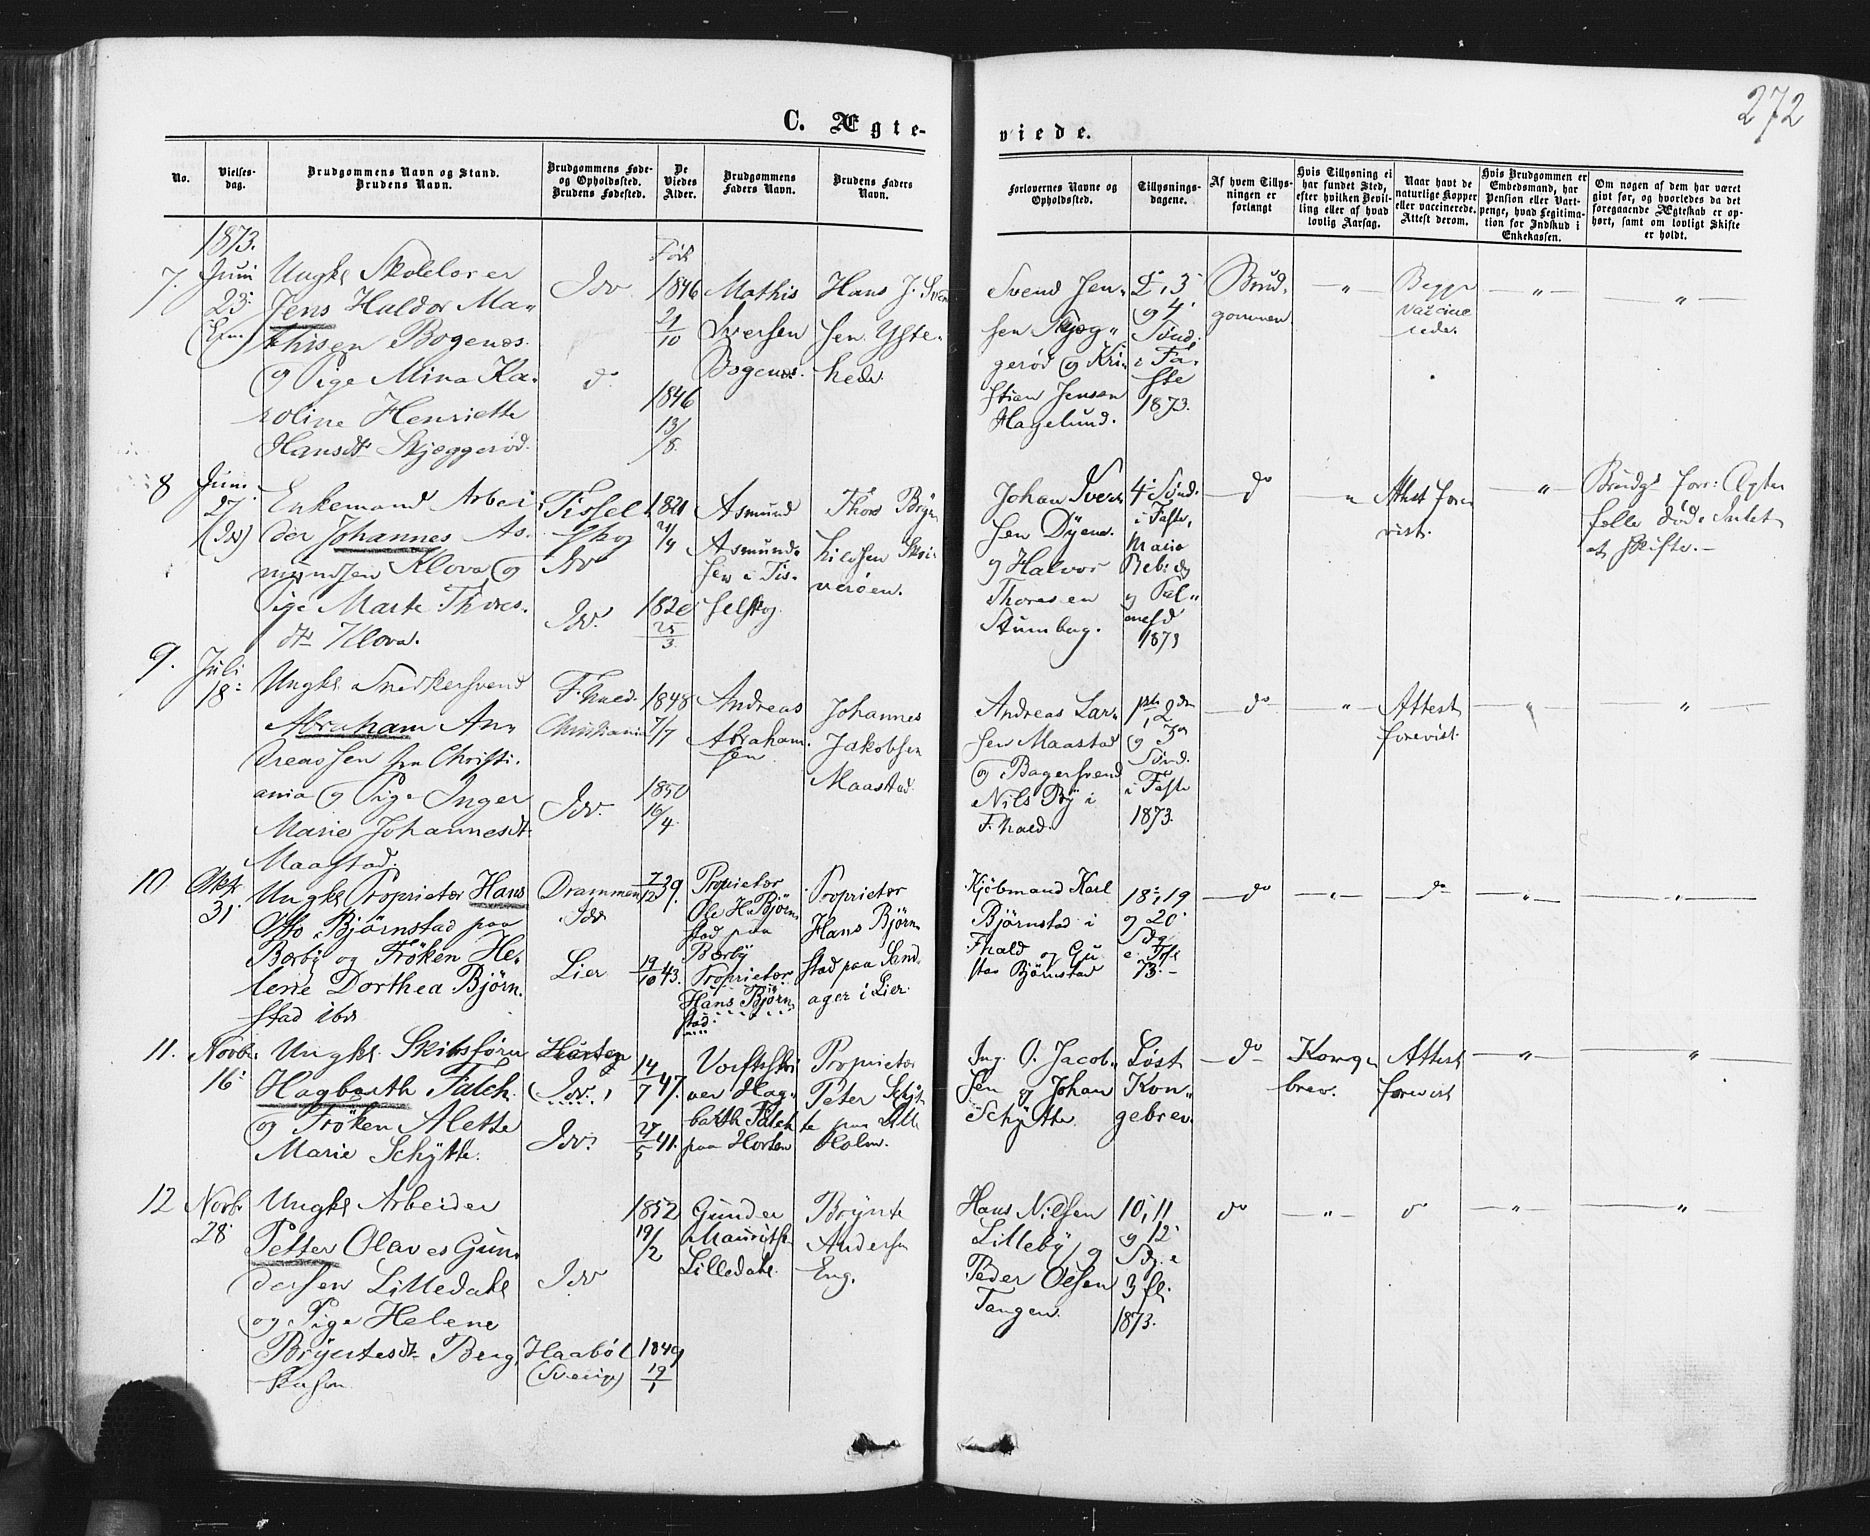 272
C. Ægte-
viede.
No.
Vielses-
dag.
Brudgommens Navn og Stand.
Brudens Navn.
Brudgommens Føde-
og Opholdssted.
Brudens Fødested.
De
Viedes
Alder.
Brudgommens
Faders Navn.
Brudens Faders
Navn.
Forlovernes Navne og
Opholdssted.
Tillysnings-
dagene.
Af hvem Tillys-
ningen er
forlangt
Hvis Tillysning ei
har fundet Sted,
efter hvilken Bevil-
ling eller af hvad
lovlig Aarsag.
Naar havt de
naturlige Kopper
eller vaccinerede.
Attest derom.
Hvis Brudgommen er
Embedsmand, har
Pension eller Vart-
penge, hvad Legitima-
tion for Indskud i
Enkekassen.
Om nogen af dem har været
gift før, og hvorledes da det
foregaaende Ægteskab er op-
hørt, samt om lovligt Skifte
er holdt.
1873.
7.
Juni
23.
Ungkl. Skolelærer
Jens Huldor Ma-
thisen Bogenæs.
og Pige Mina Ka-
roline Henriette
Hansdtr Skjeggerød.
Idd.
d.
Født
1846
21/10
1846
13/8
Mathis
Iversen
Bogenæs.
Hans J. Sven
sen Yste-
hede.
Svend Jen-
sen Skjeg-
gerød og Kri-
stian Jensen
Hagelund.
2, 3
og 4.
Sønd.
i Fa-
ste
1873.
Brud-
gommen
"
Begge
vaccine
rede.
"
"
8
Juni
27
(Idd)
Enkemand Arbei
der Johannes As-
mundsen Klova og
Pige Marte Thores-
dtr Klova.
Tissel
skog
Idd
Idd.
1821
21/4
1820
25/3
Asmund
Asmund-
sen i Tis-
selskog.
Thore Bryn
hildsen Skri
verøen.
Johan Iver
sen Dyene
og Halvor
Thoresen
Stumberg.
4 Sønd.
i Faste,
Maria
Beb: dg
og Pal-
mesd
1873
do
"
Attest fore
vist.
"
Brudg: forr: Ægte
fælle død. Intet
at skifte.
9.
Juli
18
Ungkl. Snedkersvend
Abraham An-
dreassen fra Christi-
ania og Pige Inger
Marie Johannesdt.
Maastad.
F.hald.
Christiania
Idd.
1848
7/7
1850
16/4
Andreas
Abraham-
sen
Johannes
Jakobsen
Maastad.
Andreas Lar-
sen Maastad
og Bagersvend
Nils By i
F.hald.
1ste, 2den
og 3die
Sønd.
i Faste
1873.
do
"
Attest
forevist.
"
"
10
Oktr
31.
Ungkl. Proprietær Hans
Otto Bjørnstad paa
Berby og Frøken He-
lene Dorthea Bjørn-
stad ibd
Drammen
Idd
Lier
7/12 39.
19/10 43.
Proprietær
Ole H. Bjørn-
stad paa
Berby
Proprietær
Hans Bjørn
stad.
Proprietær
Hans Bjørn-
stad paa Sand-
ager i Lier.
Kjøbmand Karl
Bjørnstad i
Fhald og Gu
stav Bjørnstad
18, 19
og 20
Sdg
e. Tref
73.
do
"
do
"
"
11.
Novbr
16
Ungkl. Skibsføre
Hagbarth Falch.
og Frøken Mette
Marie Schytte.
Horten
(Idd.)
Idd.
14/7 47.
27/5 41.
Værftsskri
ver Hag-
barth Falch
paa Horten
Proprietær
Peter Schyt-
te paa Lille
Holm.
Ing. O. Jacob-
sen og Johan
Schytte
Løst
Kon-
gebrev.
do
Konge
brev.
Attest
forevist
"
"
12
Novbr
28
Ungkl Arbeider
Petter Olaves Gun-
dersen Lilledahl
og Pige Helene
Bryntesdtr Berg
Idd
Haabøl
(Sverige)
1852
19/2
1849
19/1
Gunder
Mauritsen
Lilledahl.
Brynte
Andersen
Eng.
Hans Nilsen
Lilleby og
Peder Olsen
Tangen.
10, 11
og 12
Sdg. e
Tref
1873.
do
"
do
"
"